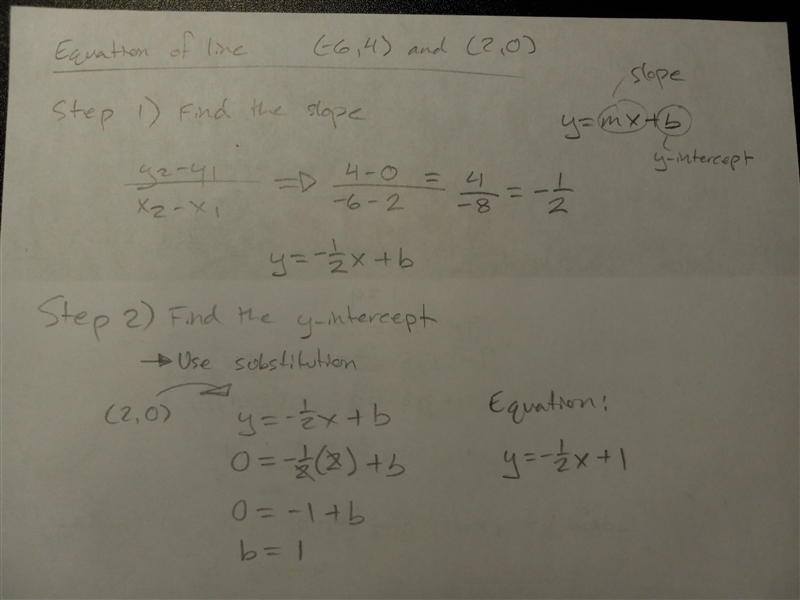 Equation of line (-6,4) and (2,0)
slope
y=mx+b
y-intercept
Step 1) Find the slope
y₂-y₁/x₂-x₁ ⇒ 4-0/-6-2 = 4/-8 = -1/2
y=-1/2x+b
Step 2) Find the y-intercept
→ Use substitution
(2,0)
y=-1/2x+b
0=-1/2(2)+b
0=-1+b
b=1
Equation:
y=-1/2x+1